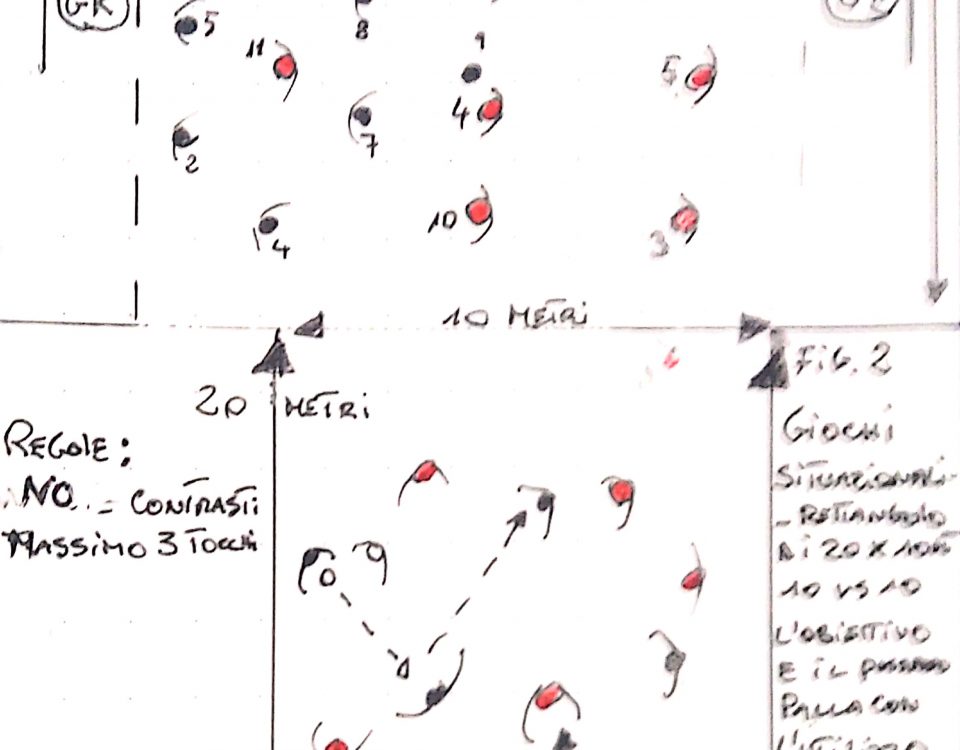 GK
5
8
9
11
5
4
7
2
10
3
4
10 METRI
20 METRI
FIG. 2
REGOLE:
NO - CONTRASTI
MASSIMO 3 TOCCHI
GIOCHI
SITUAZIONALI-
- RETTANGOLO
DI 20 X 10
10 VS 10
L'OBIETTIVO
E IL
PALLA CON
L'UTILIZZO